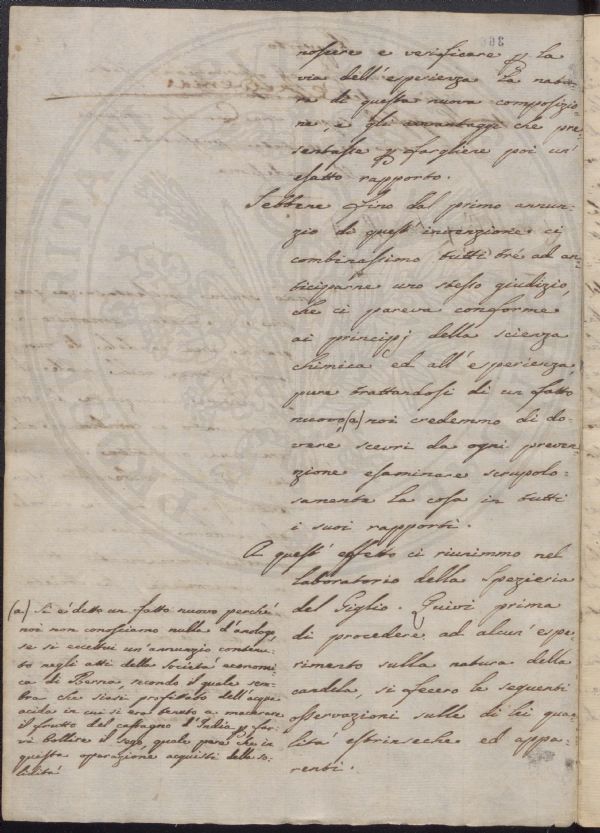 noscere e verificare p la
via dell'esperienza la natu-
ra di questa nuova composizio-
ne, e gli avvantaggi che pre-
sentasse p fargliene poi un'
esatto rapporto.
Sebbene fino dal primo annun-
zio di quest'invenzione ci
combinassimo tutti trè ad an-
ticiparne uno stesso giudizio,
che ci pareva conforme
ai principj della scienza
chimica ed all'esperienza,
pure trattandosi di un fatto
nuovo (a) noi credemmo di do-
vere scevri da ogni preven-
zione esaminare scrupolo-
samente la cosa in tutti
i suoi rapporti.
A quest'effetto ci riunimmo nel
laboratorio della Spezieria
del Giglio. Quivi prima
di procedere ad alcun'espe-
rimento sulla natura della
candela, si fecero le seguenti
osservazioni sulle di lei qua-
lità estrinseche ed appa-
renti.
(a) Si è detto un fatto nuovo perchè
noi non conosciamo nulla d'analogo,
se si eccettui un'annunzio contenu-
to negli atti della Società economi-
ca di Berna, secondo il quale sem-
bra che siasi profittato dell'acqua
acida in cui si era tenuto a macerare
il frutto del castagno d'India p far-
vi bollire il sego, quale pare che in
questa operazione acquisti della so-
lidità